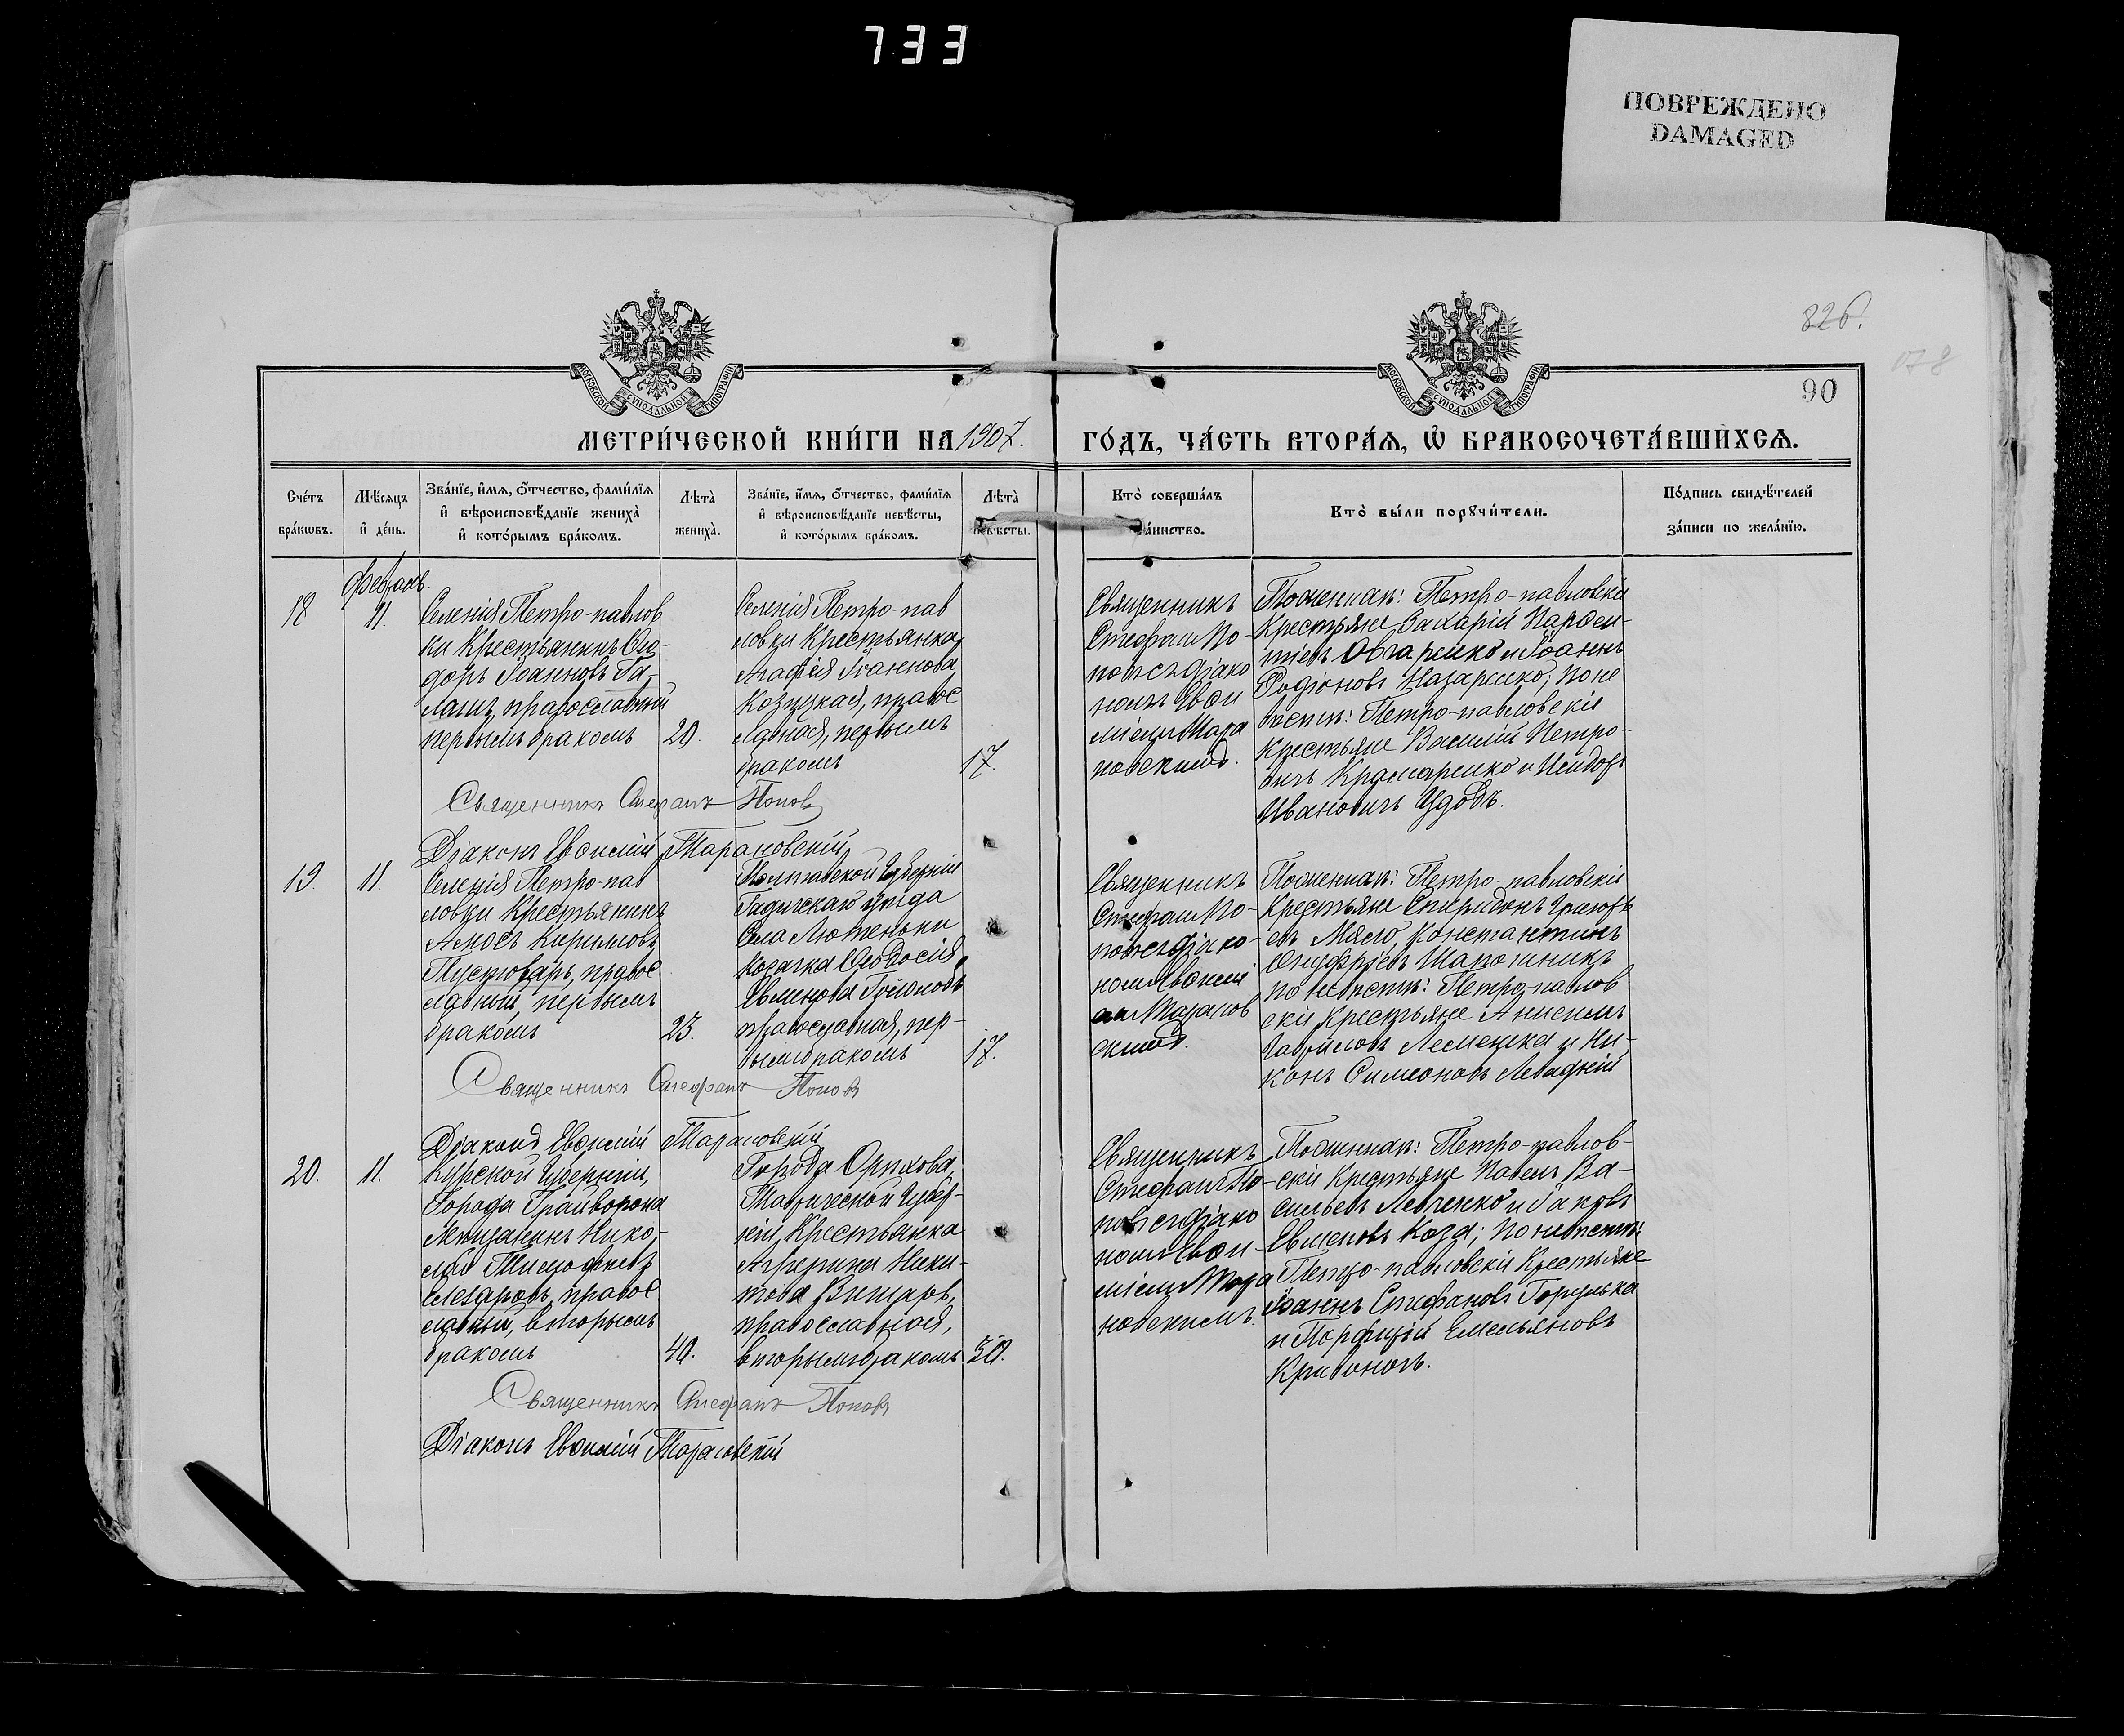 733
ПОВРЕЖДЕНО
DAMAGED
826.
078
90
МОСКОВСКОЙ СѴНОДАЛЬНОЙ ТИПОГРАФІИ
МОСКОВСКОЙ СѴНОДАЛЬНОЙ ТИПОГРАФІИ
МЕТРИ́ЧЕСКОЙ КНИ́ГИ НА 1907. ГО́ДЪ, ЧА́СТЬ ВТОРА́Я, Ѽ БРАКОСОЧЕТА́ВШИХСЯ.
Сче́тъ
бра́кѡвъ.
Мѣ́сяцъ
и҆ де́нь.
Зва́нїе, и҆́мя, ѻ҆́тчество, фами́лїя
и҆ вѣроисповѣ́данїе жениха̀
и҆ кото́рымъ бра́комъ.
Лѣта̀
жениха̀.
Зва́нїе, и҆́мя, ѻ҆́тчество, фами́лїя
и҆ вѣроисповѣ́данїе невѣ́сты,
и҆ кото́рымъ бра́комъ.
Лѣта̀
невѣ́сты.
Кто̀ соверша́лъ
та́инство.
Кто̀ бы́ли порꙋчи́тели.
По́дпись свидѣ́телей
за́писи по жела́нїю.
18
11.
Селенія Петро-павлов
ки Крестьянинъ Ѳео-
доръ Іоанновъ Га-
лашъ, православный
первымъ бракомъ
20.
Селенія Петро-пав
ловки Крестьянка
Агафія Іоаннова
Козуцкая, правос
лавная, первымъ
бракомъ
17.
Священникъ
Стефанъ По-
повъ съ діако
номъ Евѳи
міемъ Тара
новскимъ.
По женихѣ: Петро-павловскіе
Крестьяне Захарій
Овчаренко и Іоаннъ
Родіоновъ Назаренко; по не
вѣстѣ: Петро-павловскіе
Крестьяне Василій Петро-
вичъ Крамаренко и Исидоръ
Ивановичъ Удодъ.
Священникъ Стефанъ Поповъ
Діаконъ Евѳимій Тарановскій
19.
11.
Селенія Петро-пав
ловки Крестьянинъ
Амосъ Кириловъ
Пустоваръ, правос
лавный, первымъ
бракомъ
23.
Полтавской Губерніи
Гадячскаго уѣзда
Села Лютеньки
козачка Ѳеодосія
Евменова
православная, пер-
вымъ бракомъ
17.
Священникъ
Стефанъ По-
повъ съ діако-
номъ Евѳимі
емъ Таранов
скимъ.
По женихѣ: Петро-павловскіе
Крестьяне Спиридонъ Григорь
евъ Мясо, Константинъ
Онуфріевъ Шапошникъ
по невѣстѣ: Петро-павлов
скіе Крестьяне Анисимъ
Гавриловъ Лемешка и Ни-
конъ Симеоновъ Левадній
Священникъ Стефанъ Поповъ
Діаконъ Евѳимій Тарановскій
20.
11.
Курской Губерніи,
Города Грайворона
Мѣщанинъ Нико-
лай Тимофеевъ
правос
лавный, вторымъ
бракомъ
40.
Города Орѣхова,
Таврической Губер-
ніи, Крестьянка
Агрепина Ники-
това
православная,
вторымъ бракомъ
30.
Священникъ
Стефанъ По-
повъ съ діако
номъ Евѳи-
міемъ Тара
новскимъ.
По женихѣ: Петро-павлов-
скіе Крестьяне Павелъ Ва-
сильевъ Левченко и Іаковъ
Евменовъ Коза; по невѣстѣ:
Петро-павловскіе Крестьяне
Іоаннъ Стефановъ Горулька
и Порфирій Емельяновъ
Кривоносъ.
Священникъ Стефанъ Поповъ
Діаконъ Евѳимій Тарановскій